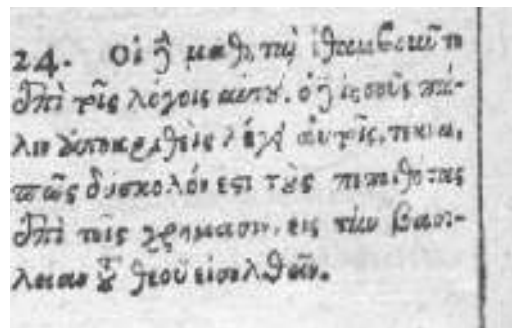 24. Οἱ δὲ μαθηταὶ ἐθαμβοῦντο
ἐπὶ τοῖς λόγοις αὐτοῦ. ὁ δὲ ἰησοῦς πά-
λιν ἀποκριθεὶς λέγει αὐτοῖς, τέκνα,
πῶς δύσκολόν ἐστι τοὺς πεποιθότας
ἐπὶ τοῖς χρήμασιν, εἰς τὴν βασι-
λείαν τοῦ θεοῦ εἰσελθεῖν.